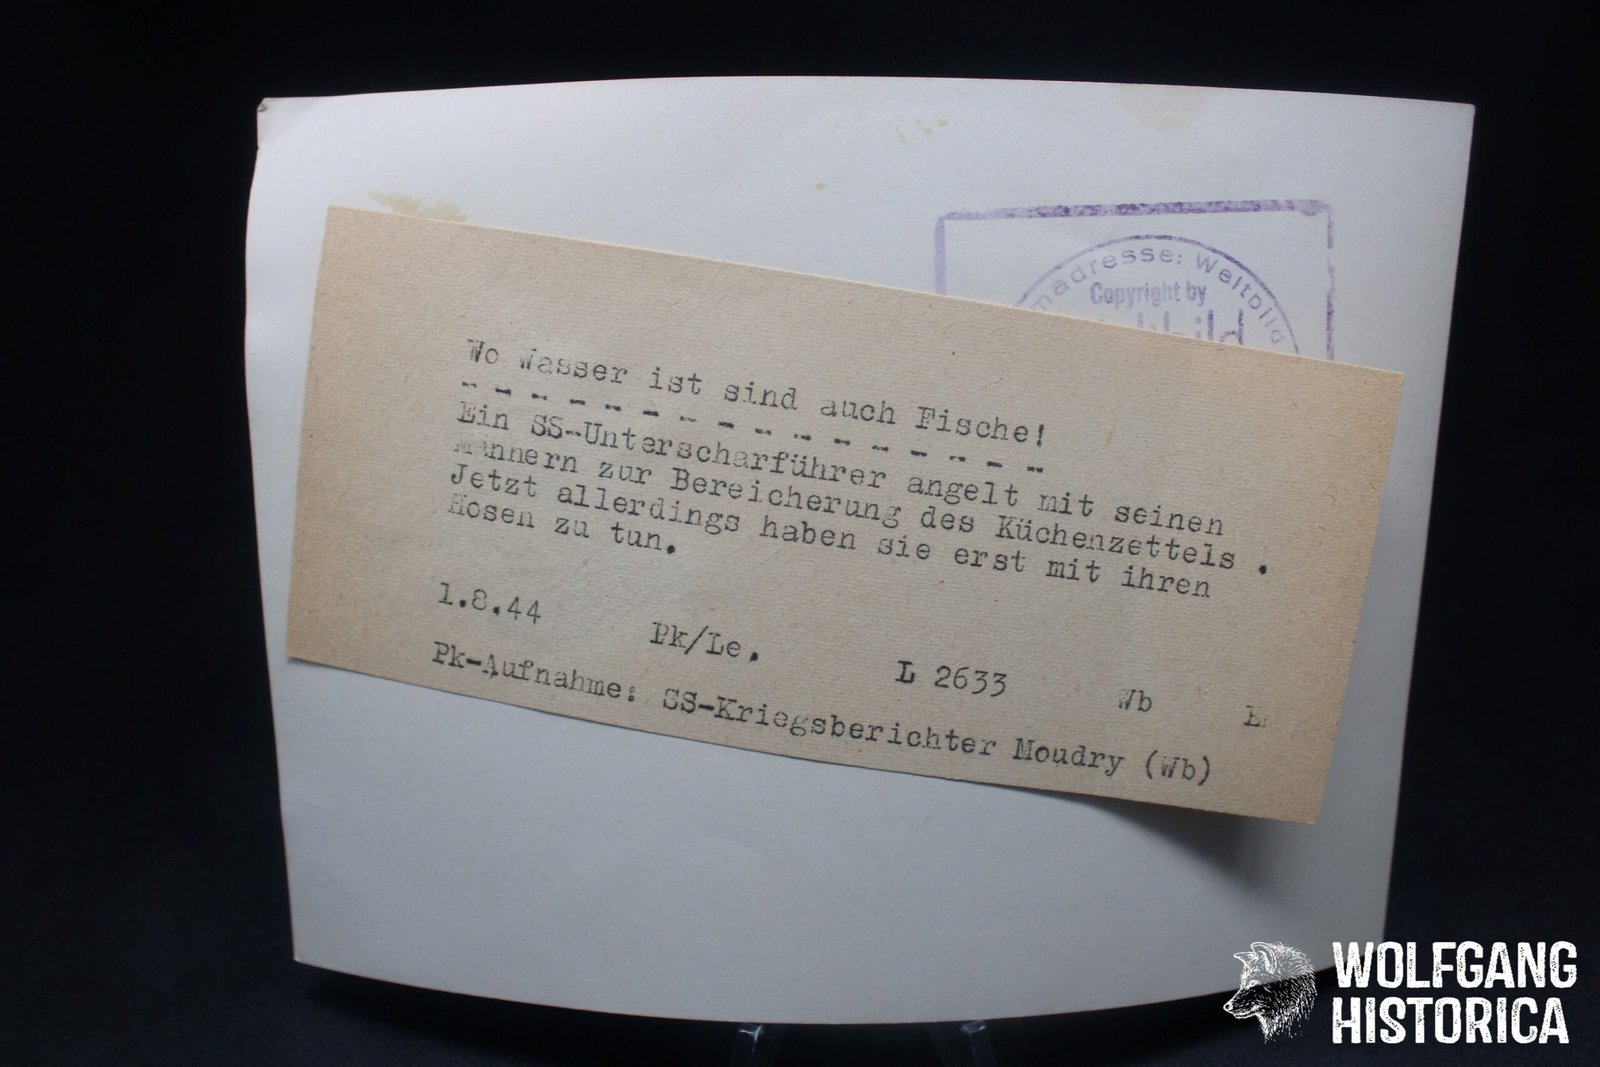 madresse: Weltbild
Copyright by
Wo Wasser ist sind auch Fische!
- - - - - - - - - - - - - - - -
Ein SS-Unterscharführer angelt mit seinen
Männern zur Bereicherung des Küchenzettels .
Jetzt allerdings haben sie erst mit ihren
Hosen zu tun.
1.8.44 Pk/Le. L 2633 Wb
Pk-Aufnahme: SS-Kriegsberichter Moudry (Wb)
WOLFGANG
HISTORICA